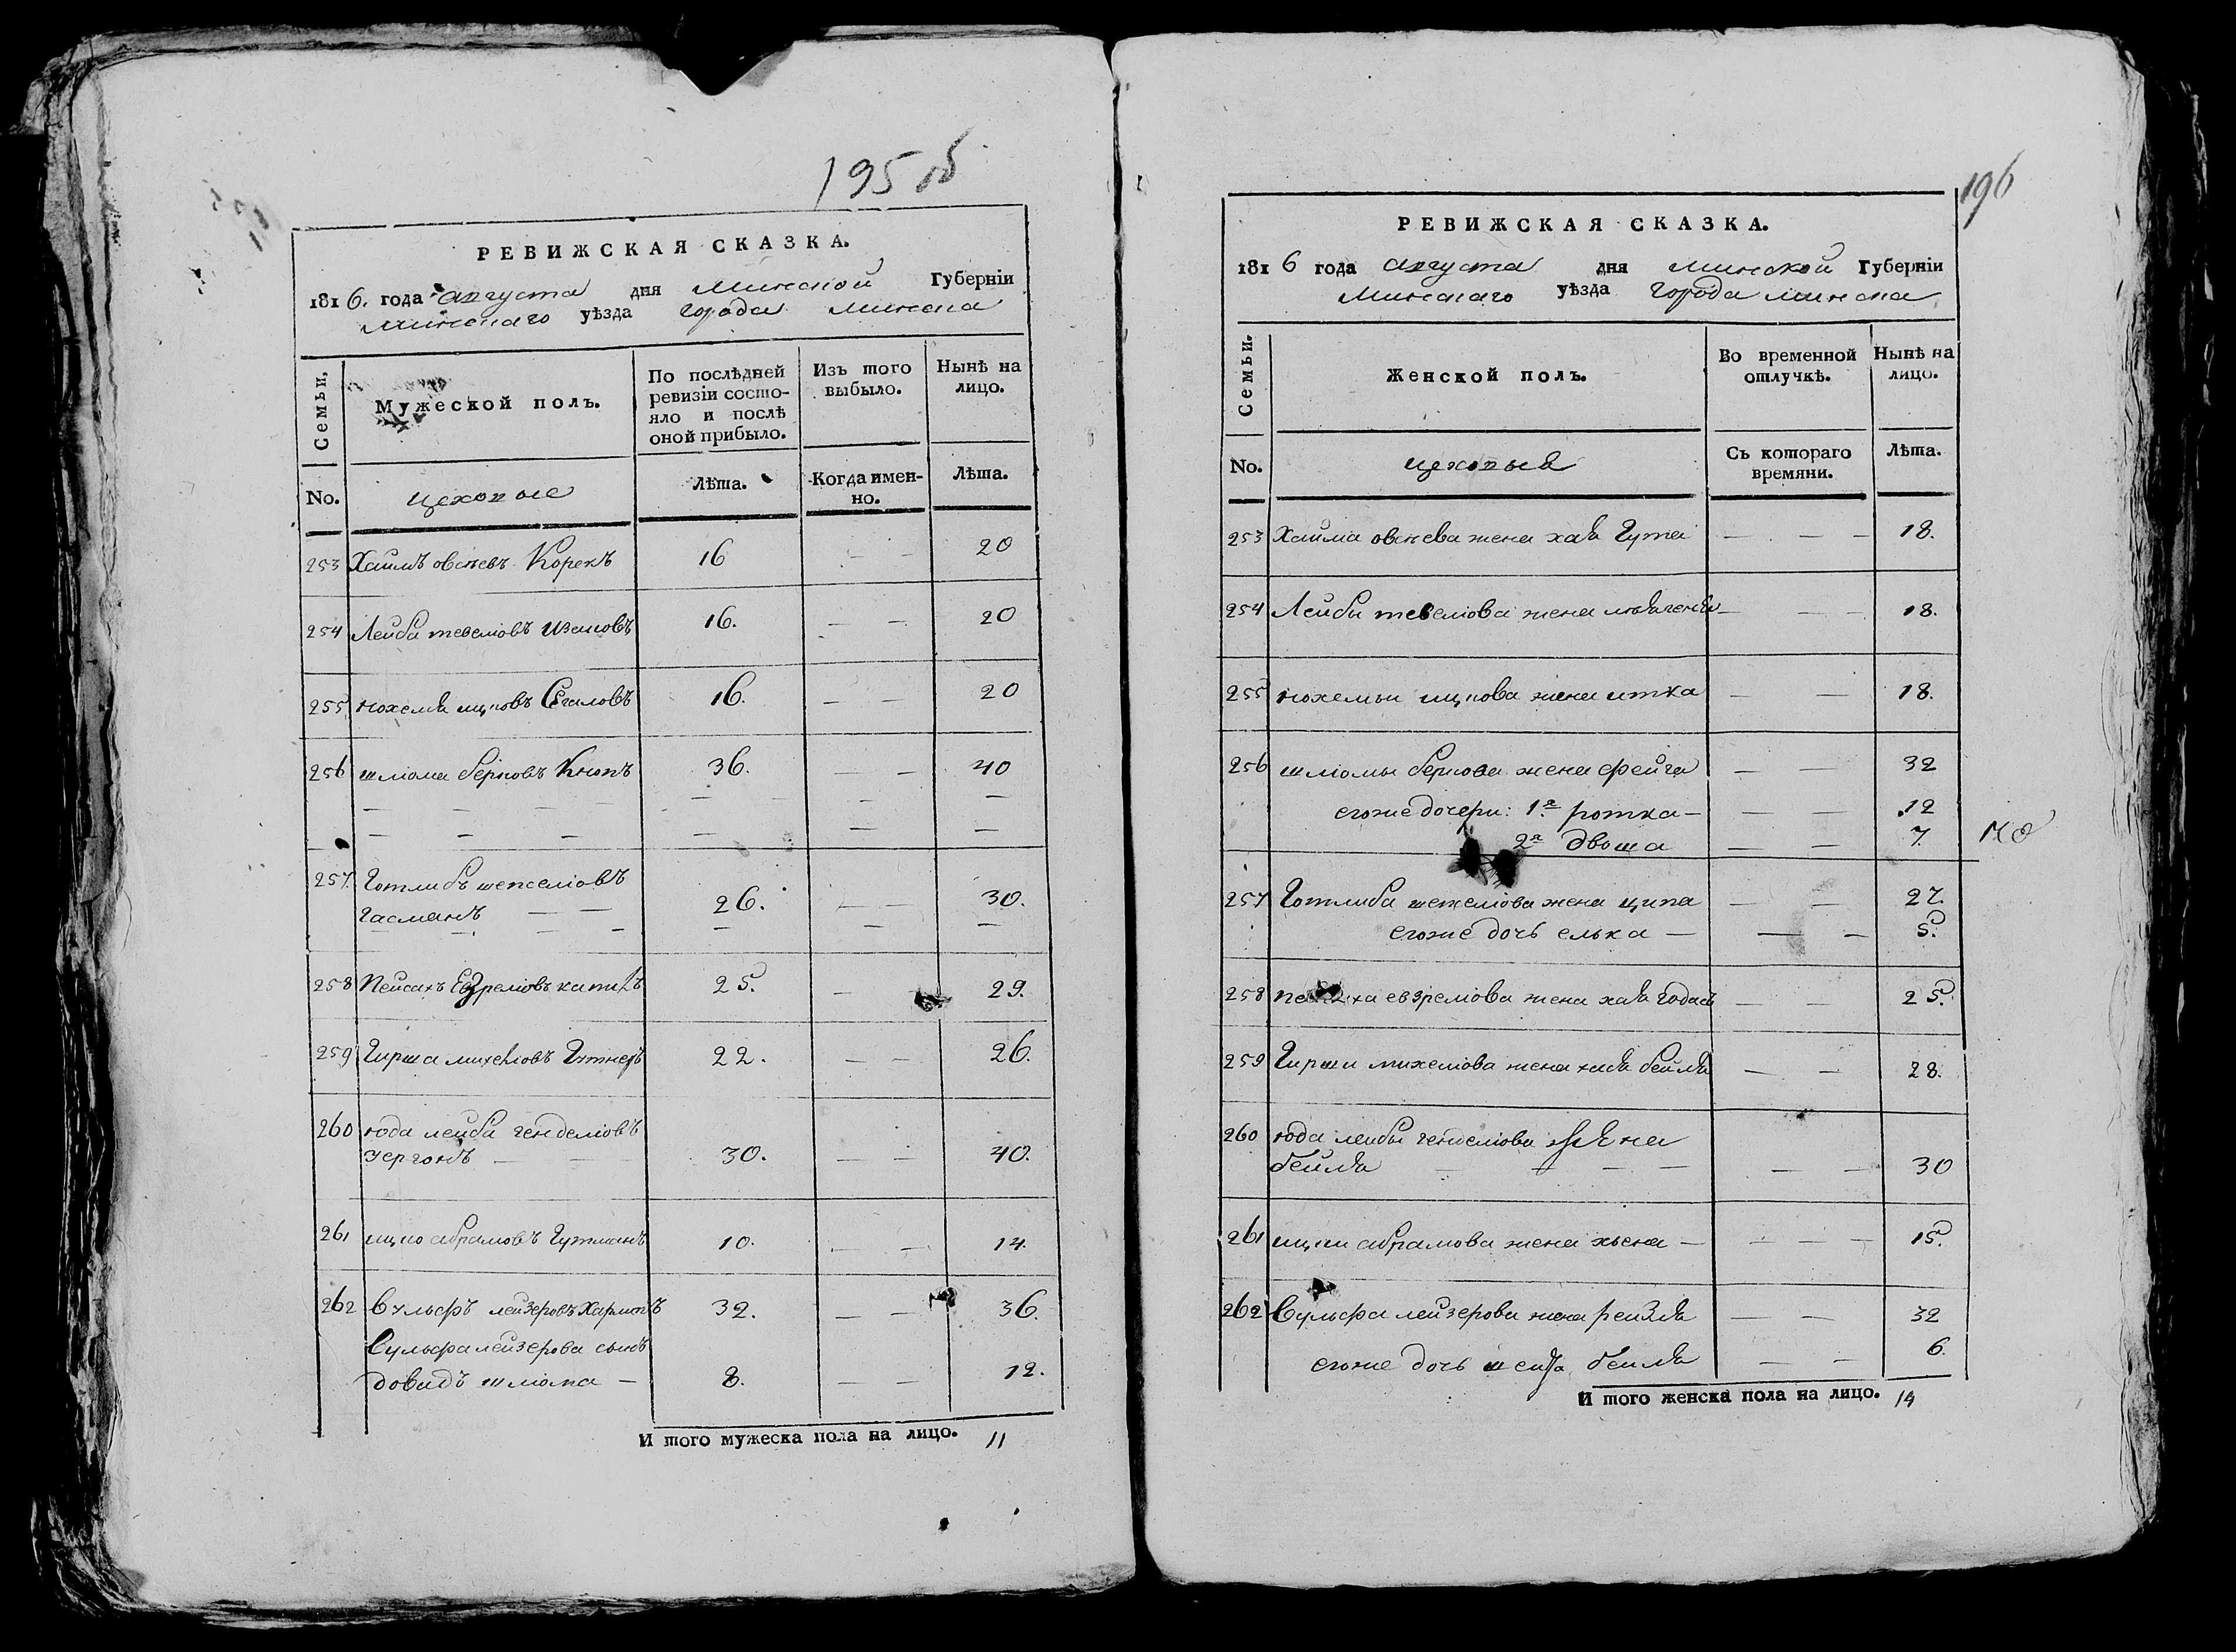 195 об.
РЕВИЖСКАЯ СКАЗКА.
1816. года августа дня Минской Губернїи
Минскаго уѣзда города Минска
Семьи. Мужеской полъ. По послѣдней ревизїи состояло и послѣ оной прибыло. Изъ того выбыло. Нынѣ на лицо.
No. цеховые Лѣта. Когда именно. Лѣта.
253 Хаимъ овсѣевъ Корекъ 16 — — 20
254 Лейба тевелιовъ 16. — — 20
255 нохемя ицковъ Сегаловъ 16. — — 20
256 шлιома берковъ Кнопъ 36. — — 40
— — — — — — —
— — — — — —
257. Готлибъ шепселιовъ
гасманъ — — 26. — — 30.
— — — — — —
258 Пейсахъ Евзрелιовъ 25. — 29.
259 Гирша михелιовъ 22. — — 26.
260 юда лейба генделιовъ
зергонъ — — 30. — — 40.
261 ицко абрамовъ Гутманъ 10. — — 14.
262 Вульфъ лейзеровъ 32. — — 36.
Вульфа лейзерова сынъ
довидъ шлιома — 8. — — 12.
И того мужеска пола на лицо. 11
196
РЕВИЖСКАЯ СКАЗКА.
1816 года августа дня Минской Губернїи
Минскаго уѣзда города Минска
Семьи. Женской полъ. Во временной отлучкѣ. Нынѣ на лицо.
No. цеховыя Съ котораго времяни. Лѣта.
253 Хаима овсѣева жена хая Гута — — — 18.
254 Лейбы тевелιова жена — — — 18.
255 нохемьи ицкова жена итка — — 18.
256 шлιомы беркова жена фейга — — 32
егоже дочери: 1я ротка — — — 12
2я двоша — — 7.
257 Готлиба шепселιова жена ципа — — 27.
егоже дочь елька — — — 5.
258 евзрелιова жена хая — — 25.
259 Гирши михелιова жена хая бейля — — 28.
260 юда лейбы генделιова жена
бейля — — — — — — 30
261 ицки абрамова жена хьена — — — — 15.
262 Вульфа лейзерова жена рейзля — — 32
егоже дочь бейля — — 6.
И того женска пола на лицо. 14